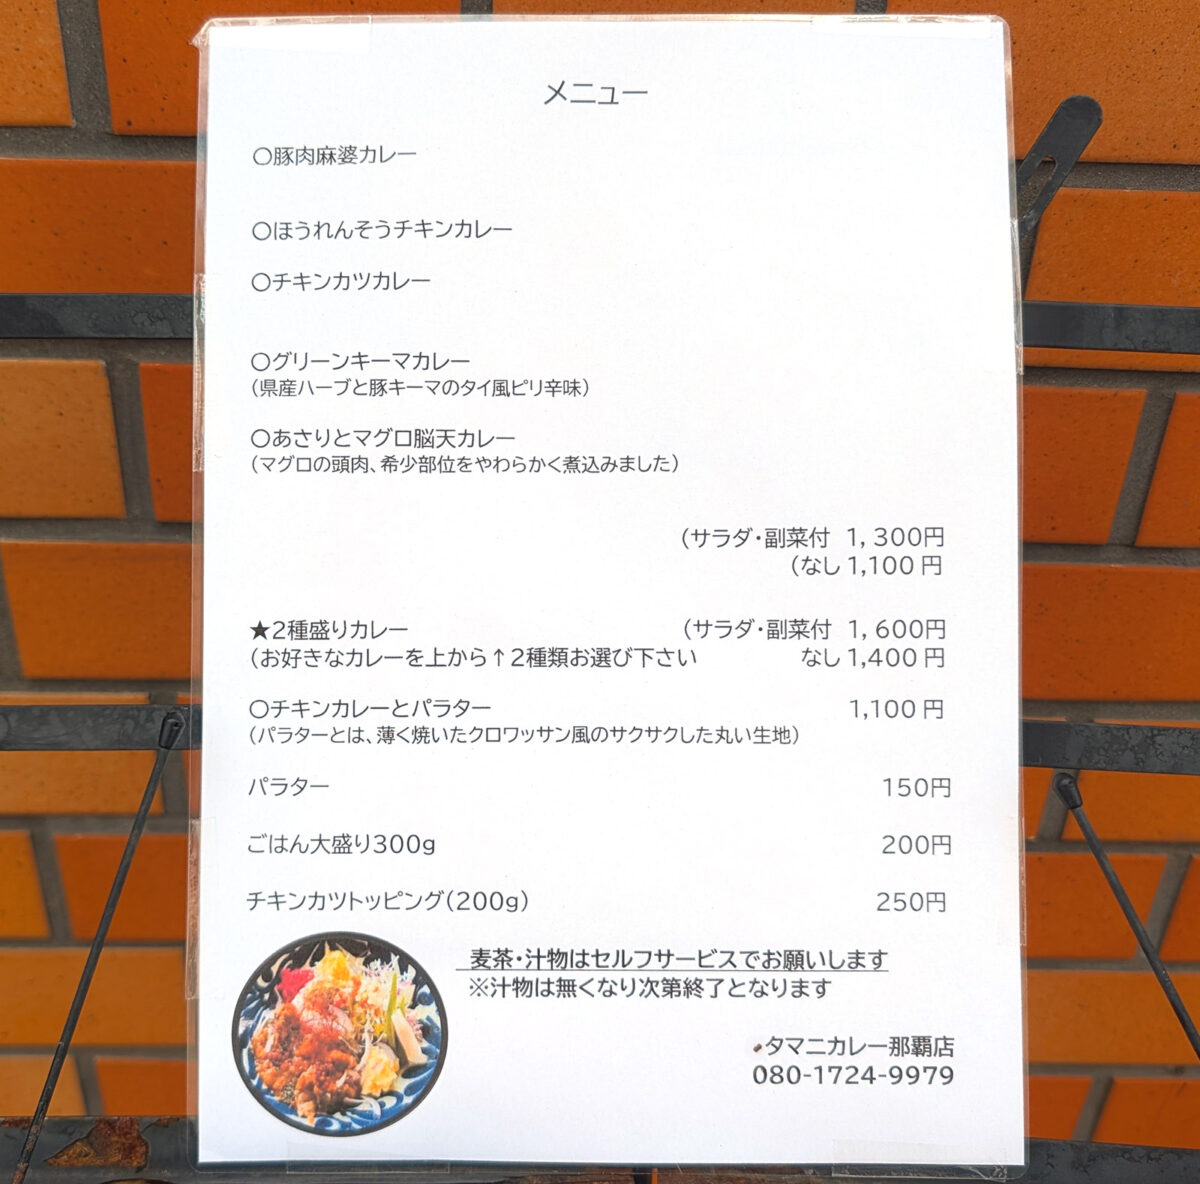 メニュー
○豚肉麻婆カレー
○ほうれんそうチキンカレー
○チキンカツカレー
○グリーンキーマカレー
(県産ハーブと豚キーマのタイ風ピリ辛味)
○あさりとマグロ脳天カレー
(マグロの頭肉、希少部位をやわらかく煮込みました)
(サラダ・副菜付 1,300円
(なし 1,100円
★2種盛りカレー (サラダ・副菜付 1,600円
(お好きなカレーを上から↑2種類お選び下さい なし 1,400円
○チキンカレーとパラター 1,100円
(パラターとは、薄く焼いたクロワッサン風のサクサクした丸い生地)
パラター 150円
ごはん大盛り300g 200円
チキンカツトッピング(200g) 250円
麦茶・汁物はセルフサービスでお願いします
※汁物は無くなり次第終了となります
・タマニカレー那覇店
080-1724-9979